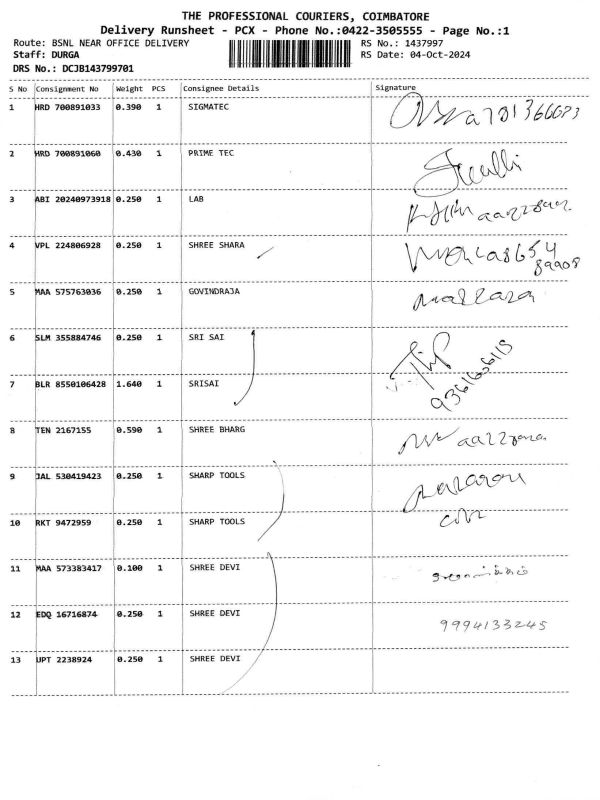 THE PROFESSIONAL COURIERS, COIMBATORE
Delivery Runsheet - PCX - Phone No.:0422-3505555 - Page No.:1
Route: BSNL NEAR OFFICE DELIVERY
RS No.: 1437997
Staff: DURGA
RS Date: 04-Oct-2024
DRS No.: DCJB143799701
S No Consignment No Weight PCS Consignee Details Signature
1 HRD 700891033 0.390 1 SIGMATEC
2 HRD 700891060 0.430 1 PRIME TEC
3 ABI 20240973918 0.250 1 LAB
4 VPL 224806928 0.250 1 SHREE SHARA
5 MAA 575763036 0.250 1 GOVINDRAJA
6 SLM 355884746 0.250 1 SRI SAI
7 BLR 8550106428 1.640 1 SRISAI
8 TEN 2167155 0.590 1 SHREE BHARG
9 JAL 530419423 0.250 1 SHARP TOOLS
10 RKT 9472959 0.250 1 SHARP TOOLS
11 MAA 573383417 0.100 1 SHREE DEVI
12 EDQ 16716874 0.250 1 SHREE DEVI 9994133245
13 UPT 2238924 0.250 1 SHREE DEVI